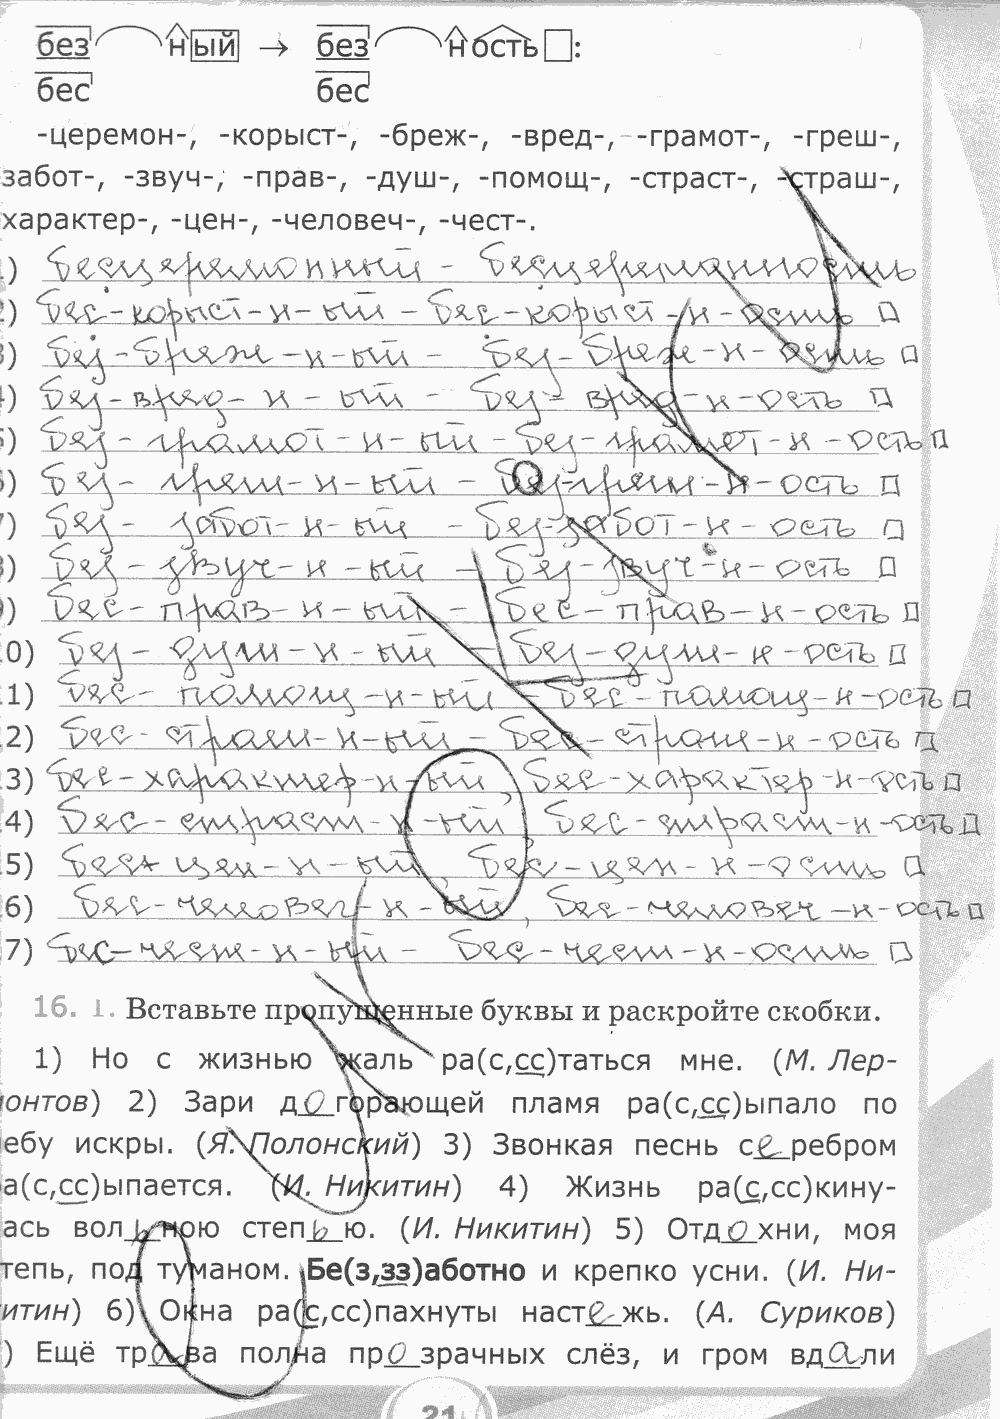 без н ый → без н ость :
бес бес
-церемон-, -корыст-, -бреж-, -вред-, -грамот-, -греш-,
забот-, -звуч-, -прав-, -душ-, -помощ-, -страст-, -страш-,
характер-, -цен-, -человеч-, -чест-.
) бесцеремонный - бесцеремонность
2) бес-корыст-н-ый - бес-корыст-н-ость
3) без-бреж-н-ый - без-бреж-н-ость
4) без-вред-н-ый - без-вред-н-ость
5) без-грамот-н-ый - без-грамот-н-ость
6) без-греш-н-ый - без-греш-н-ость
7) без-забот-н-ый - без-забот-н-ость
8) без-звуч-н-ый - без-звуч-н-ость
9) бес-прав-н-ый - бес-прав-н-ость
0) без-душ-н-ый - без-душ-н-ость
1) бес-помощ-н-ый - бес-помощ-н-ость
2) бес-страш-н-ый - бес-страш-н-ость
3) бес-характер-н-ый, бес-характер-н-ость
4) бес-страст-н-ый, бес-страст-н-ость
5) бес-цен-н-ый, бес-цен-н-ость
6) бес-человеч-н-ый, бес-человеч-н-ость
7) бес-чест-н-ый - бес-чест-н-ость
16. 1. Вставьте пропущенные буквы и раскройте скобки.
1) Но с жизнью жаль ра(с,сс)таться мне. (М. Лер-
монтов) 2) Зари д о горающей пламя ра(с,сс)ыпало по
ебу искры. (Я. Полонский) 3) Звонкая песнь с е ребром
а(с,сс)ыпается. (И. Никитин) 4) Жизнь ра(с,сс)кину-
ась вол ь ною степ ь ю. (И. Никитин) 5) Отд о хни, моя
тепь, под туманом. Бе(з,зз)аботно и крепко усни. (И. Ни-
китин) 6) Окна ра(с,сс)пахнуты наст е жь. (А. Суриков)
) Ещё тр а ва полна пр о зрачных слёз, и гром вд а ли
21